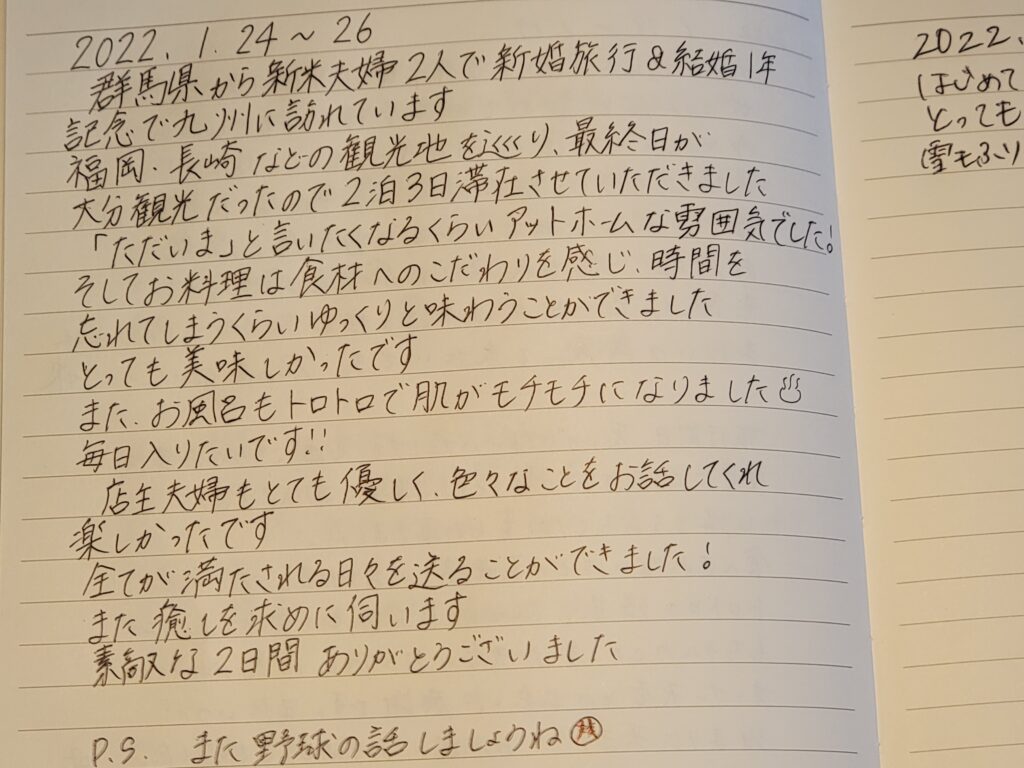 2022. 1. 24 ~ 26
群馬県から新米夫婦2人で新婚旅行&結婚1年
記念で九州に訪れています
福岡・長崎などの観光地を巡り、最終日が
大分観光だったので2泊3日滞在させていただきました
「ただいま」と言いたくなるくらいアットホームな雰囲気でした!
そしてお料理は食材へのこだわりを感じ、時間を
忘れてしまうくらいゆっくりと味わうことができました
とっても美味しかったです
また、お風呂もトロトロで肌がモチモチになりました♨
毎日入りたいです!!
店主夫婦もとても優しく、色々なことをお話してくれ
楽しかったです
全てが満たされる日々を送ることができました!
また癒しを求めに伺います
素敵な2日間 ありがとうございました
P.S. また野球の話しましょうね
2022.
はじめて
とっても
雪もふり